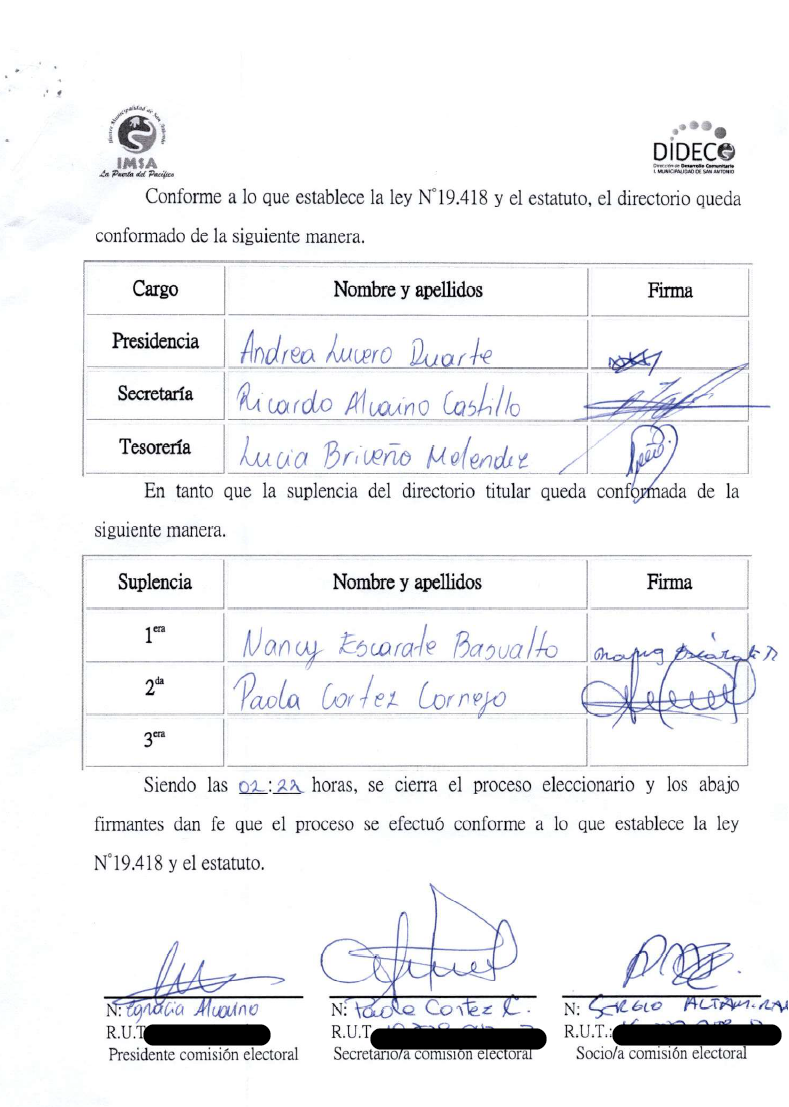 IMSA
La Puerta del Pacífico
DIDECO
Dirección de Desarrollo Comunitario
I. MUNICIPALIDAD DE SAN ANTONIO
Conforme a lo que establece la ley N°19.418 y el estatuto, el directorio queda
conformado de la siguiente manera.
Cargo Nombre y apellidos Firma
Presidencia Andrea Lucero Duarte
Secretaría Ricardo Alvaino Castillo
Tesorería Lucia Briceño Melendez
En tanto que la suplencia del directorio titular queda conformada de la
siguiente manera.
Suplencia Nombre y apellidos Firma
1era Nancy Escarate Basualto
2da Paola Cortez Cornejo
3era
Siendo las 02:22 horas, se cierra el proceso eleccionario y los abajo
firmantes dan fe que el proceso se efectuó conforme a lo que establece la ley
N°19.418 y el estatuto.
N: Ignacia Alvaino N: Paola Cortez C. N: SERGIO
R.U.T R.U.T R.U.T.:
Presidente comisión electoral Secretario/a comisión electoral Socio/a comisión electoral